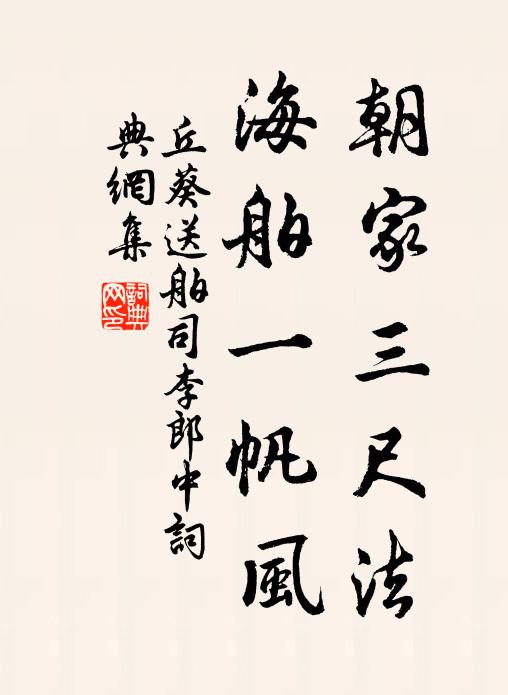 朝家三尺法
海舶一帆風
丘葵送舶司李郎中詞
典網集
詞典網印